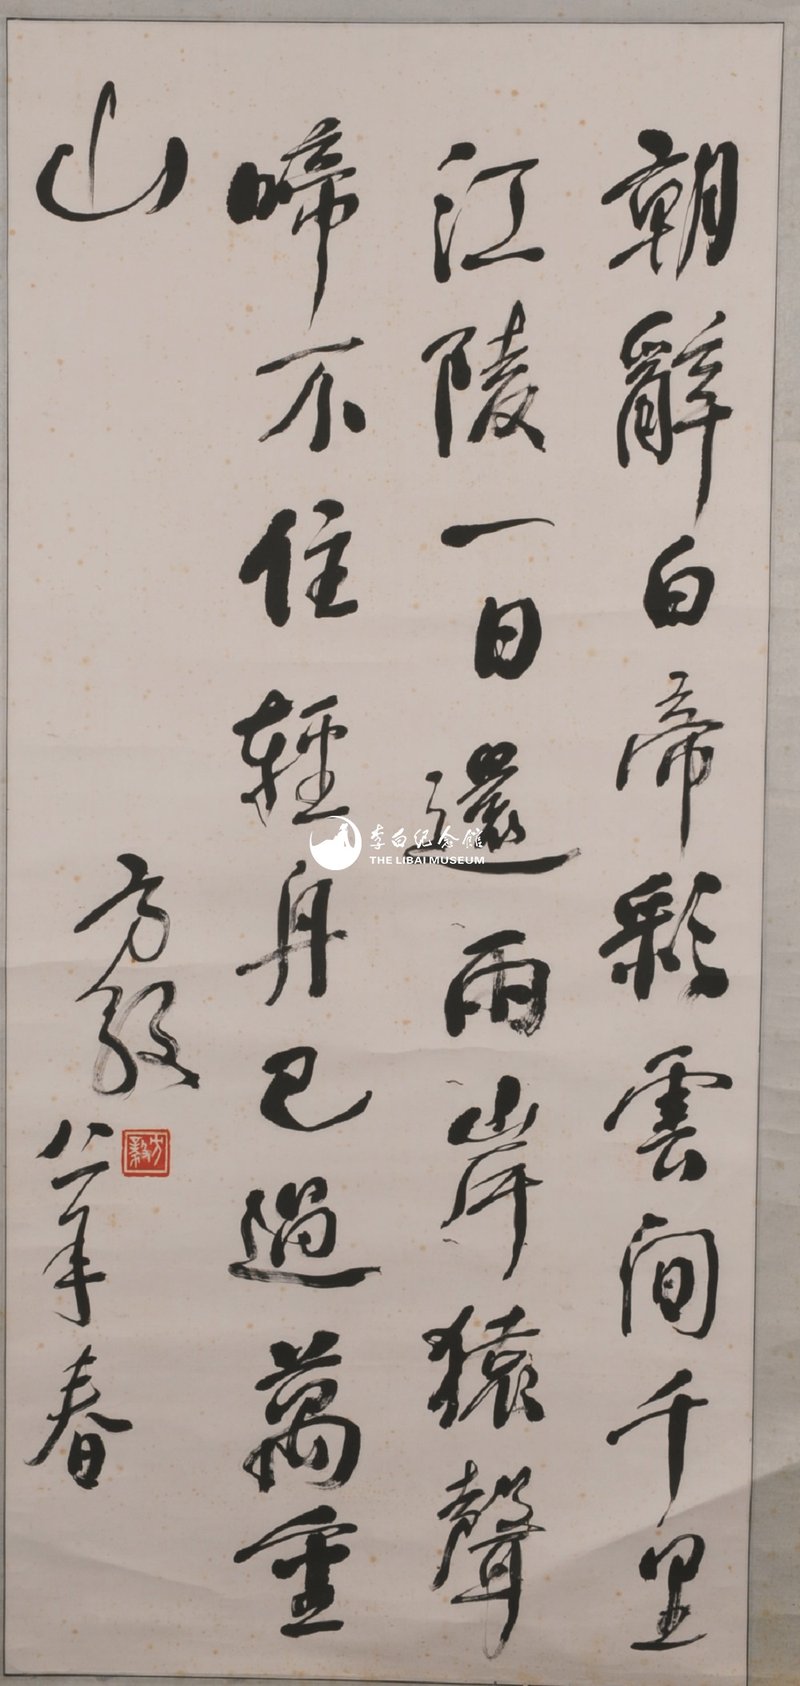 朝辭白帝彩雲间千里
江陵一日還兩岸猿聲
啼不住輕舟已過萬重
山
方毅
八一年春
方毅
李白纪念馆
THE LIBAI MUSEUM